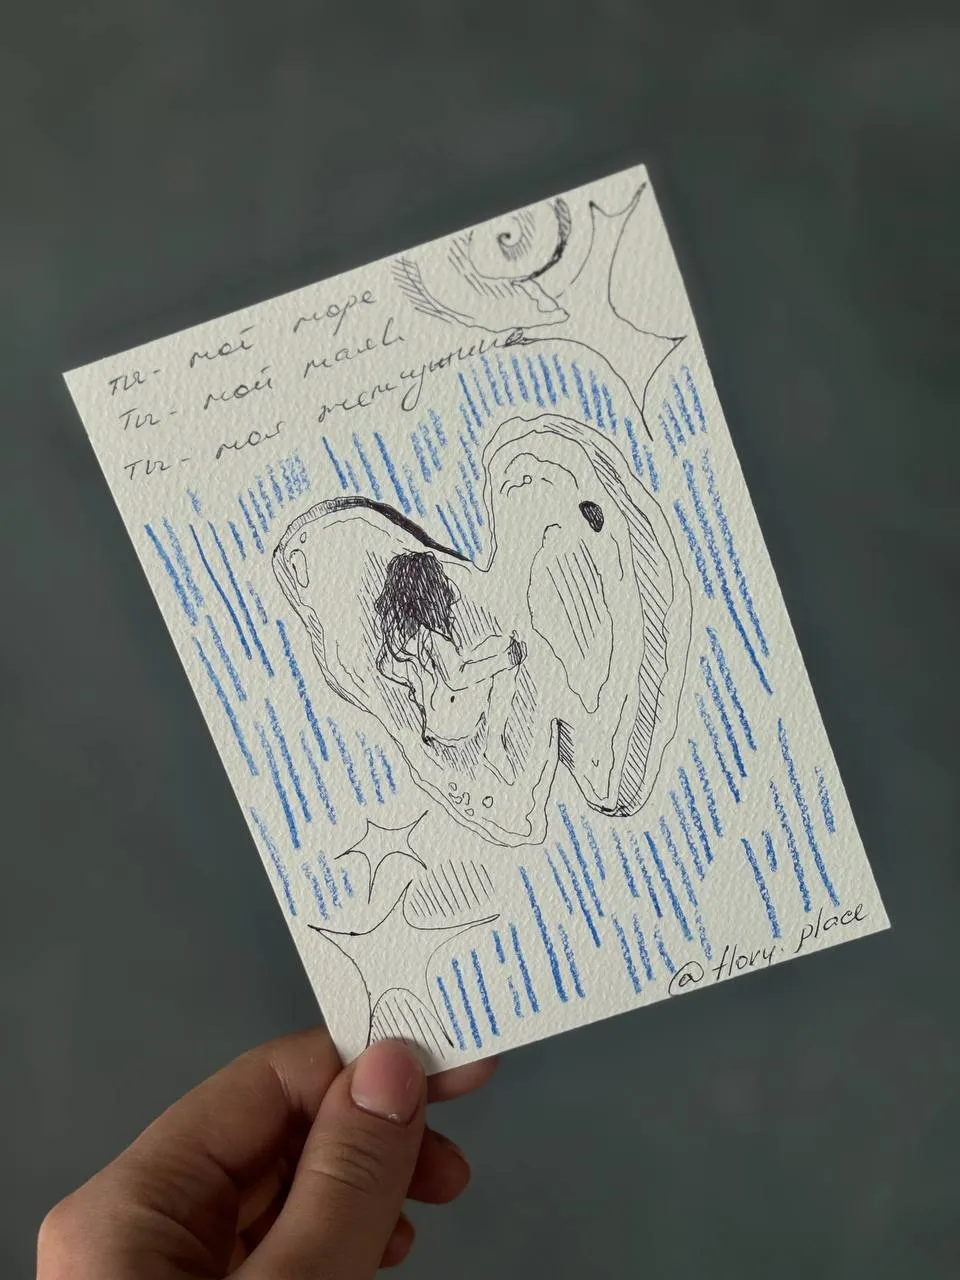 ты - моё море
ты - мой маяк
ты - моя жемчужина
@flory.place